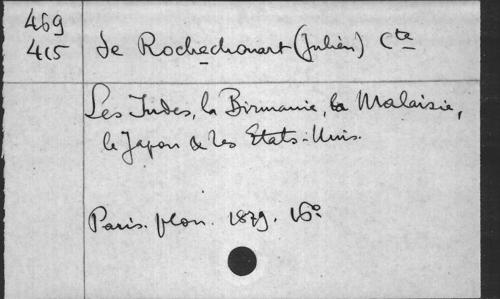 469
415
de Rochechouart (Julien) Cte
Les Indes, la Birmanie, la Malaisie,
le Japon & les Etats-Unis.
Paris. plon. 1879. 16°